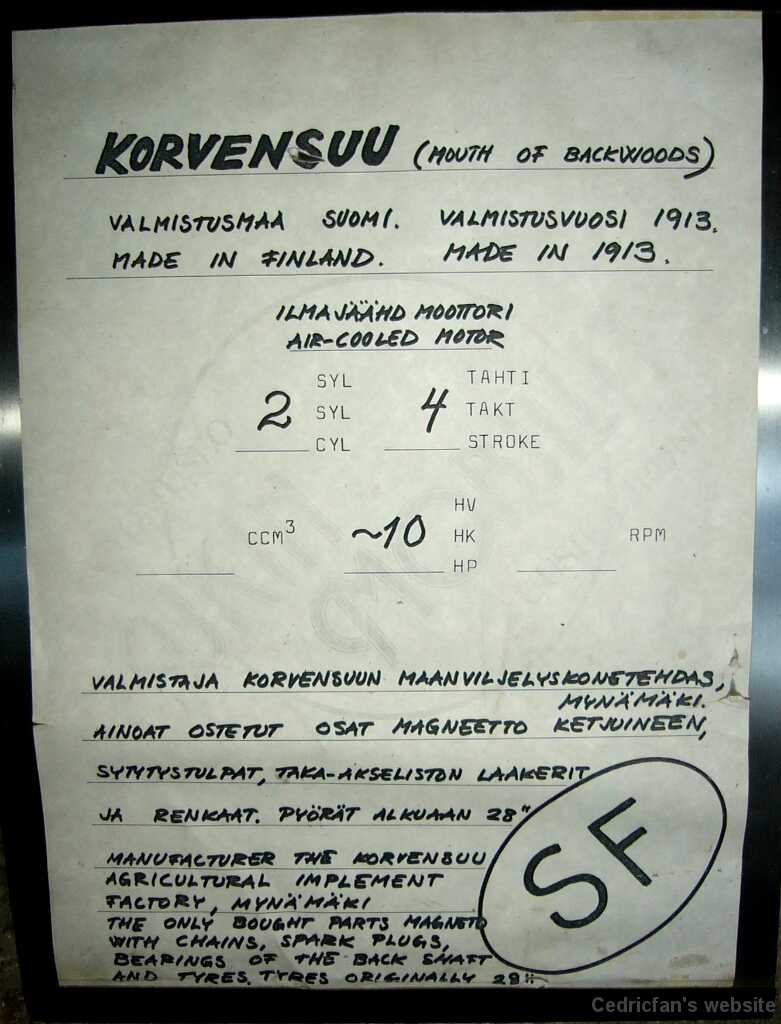 KORVENSUU (MOUTH OF BACKWOODS)
VALMISTUSMAA SUOMI. VALMISTUSVUOSI 1913.
MADE IN FINLAND. MADE IN 1913.
ILMAJÄÄHD MOOTTORI
AIR-COOLED MOTOR
SYL TAHTI
2 SYL 4 TAKT
CYL STROKE
HV
CCM³ ~10 HK RPM
HP
VALMISTAJA KORVENSUUN MAANVILJELYSKONETEHDAS,
MYNÄMÄKI.
AINOAT OSTETUT OSAT MAGNEETTO KETJUINEEN,
SYTYTYSTULPAT, TAKA-AKSELISTON LAAKERIT
JA RENKAAT. PYÖRÄT ALKUAAN 28"
MANUFACTURER THE KORVENSUU
AGRICULTURAL IMPLEMENT
FACTORY, MYNÄMÄKI
THE ONLY BOUGHT PARTS MAGNETO
WITH CHAINS, SPARK PLUGS,
BEARINGS OF THE BACK SHAFT
AND TYRES. TYRES ORIGINALLY 28"
SF
Cedricfan's website